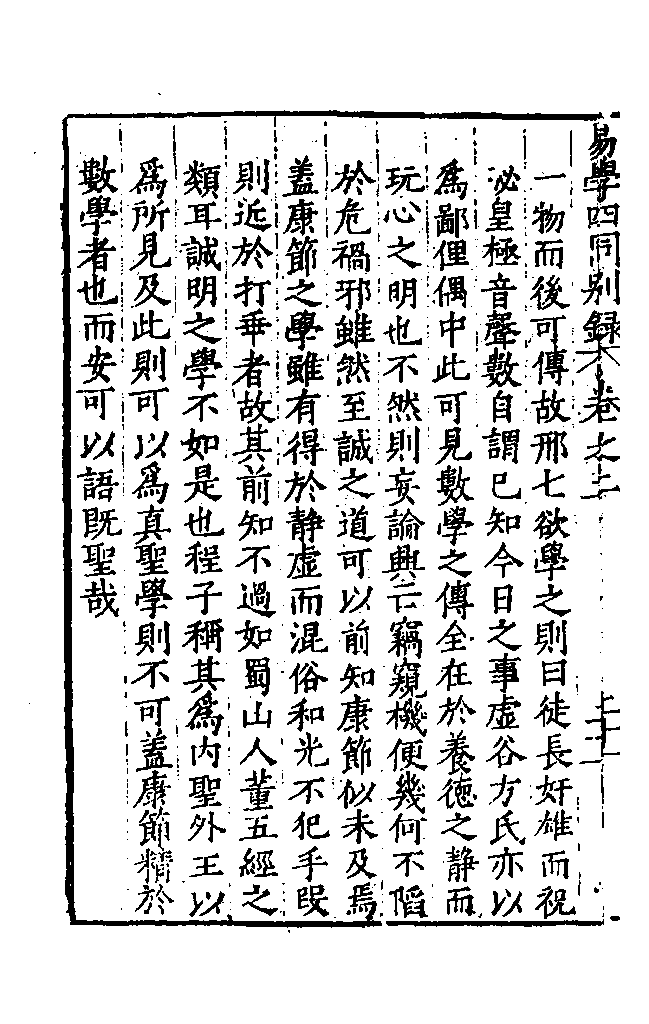 易學四同別録 卷之上
一物而後可傳故邢七欲學之則曰徒長奸雄而祝
泌皇極音聲數自謂已知今日之事虛谷方氏亦以
爲鄙俚偶中此可見數學之傳全在於養德之静而
玩心之明也不然則妄論興亡竊窺機便幾何不陷
於危禍邪雖然至誠之道可以前知康節似未及焉
蓋康節之學雖有得於静虛而混俗和光不犯手叚
則近於打乖者故其前知不過如蜀山人董五經之
類耳誠明之學不如是也程子稱其爲内聖外王以
爲所見及此則可以爲真聖學則不可蓋康節精於
數學者也而安可以語既聖哉